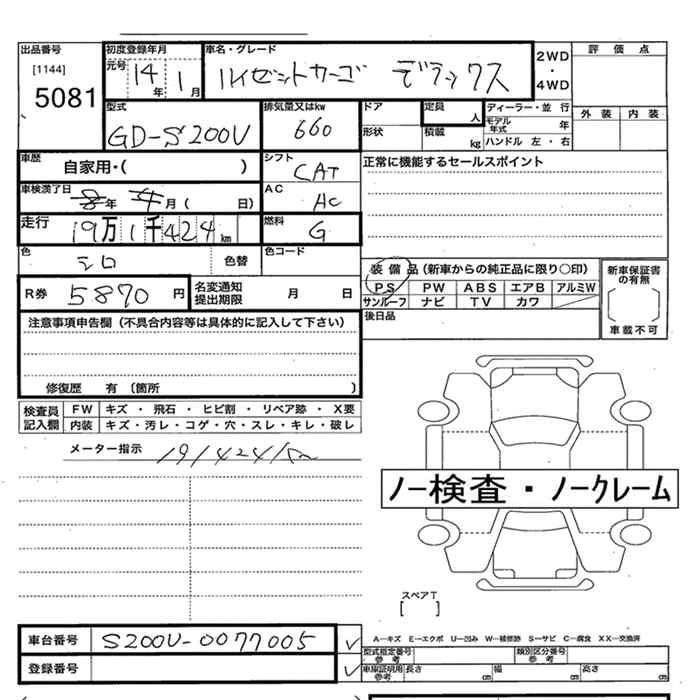 出品番号 初度登録年月 車名・グレード 評価点
[1144] 元号 14年 1月 ハイゼットカーゴ デラックス 2WD・4WD
5081
型式 排気量又はkw ドア 定員 人 ディーラー・並行 外装 内装
GD-S200V 660 形状 積載 kg モデル年式 年
ハンドル 左・右
車歴 自家用・( ) シフト CAT 正常に機能するセールスポイント
車検満了日 年 月( 日) AC AC
走行 19万1千424km 燃料 G
色 シロ 色替 色コード
装備品(新車からの純正品に限り○印) 新車保証書の有無
R券 5870円 名変通知提出期限 月 日 PS PW ABS エアB アルミW
サンルーフ ナビ TV カワ 車載不可
注意事項申告欄(不具合内容等は具体的に記入して下さい) 後日品
修復歴 有 (箇所 )
検査員記入欄 FW キズ・飛石・ヒビ割・リペア跡・X要
内装 キズ・汚レ・コゲ・穴・スレ・キレ・破レ
メーター指示 191424km
ノー検査・ノークレーム
スペアT
[ ]
車台番号 S200V-0077005 A―キズ E―エクボ U―凹み W―補修跡 S―サビ C―腐食 XX―交換済
型式指定番号参考 類別区分番号参考
登録番号 車庫証明用参考 長さ cm 幅 cm 高さ cm